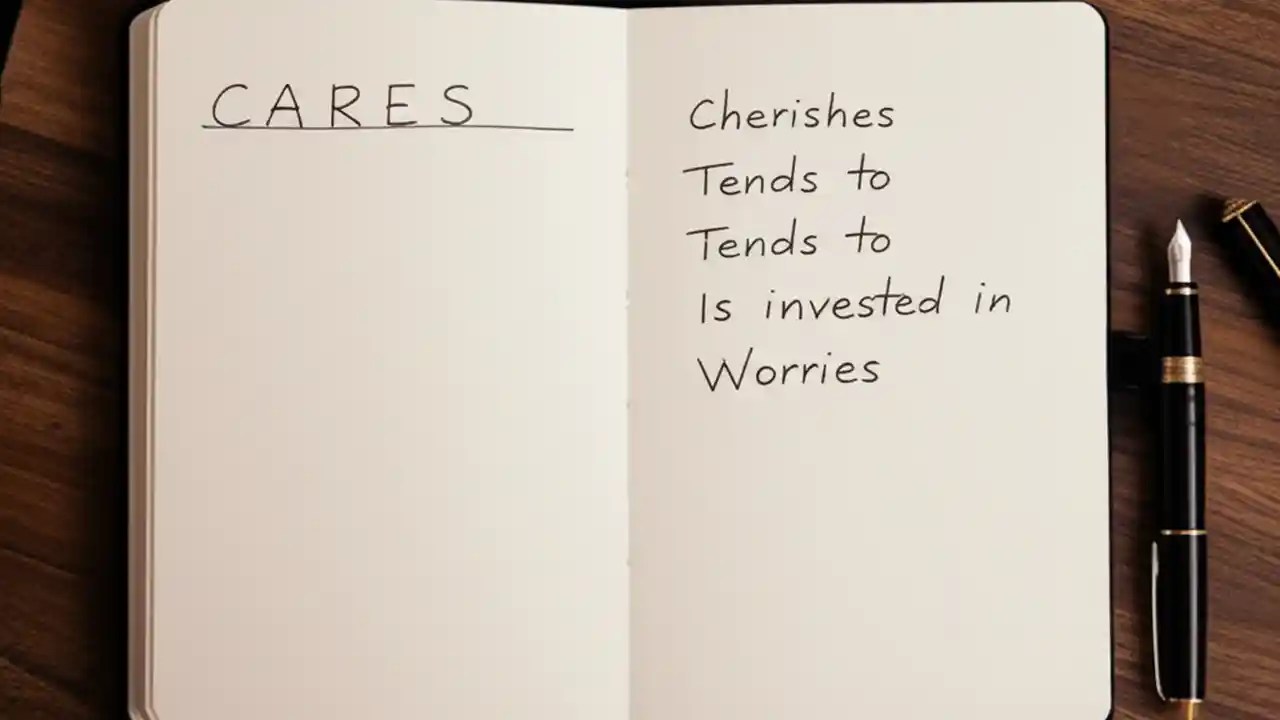 CARES
Cherishes
Tends to
Tends to
Is invested in
Worries